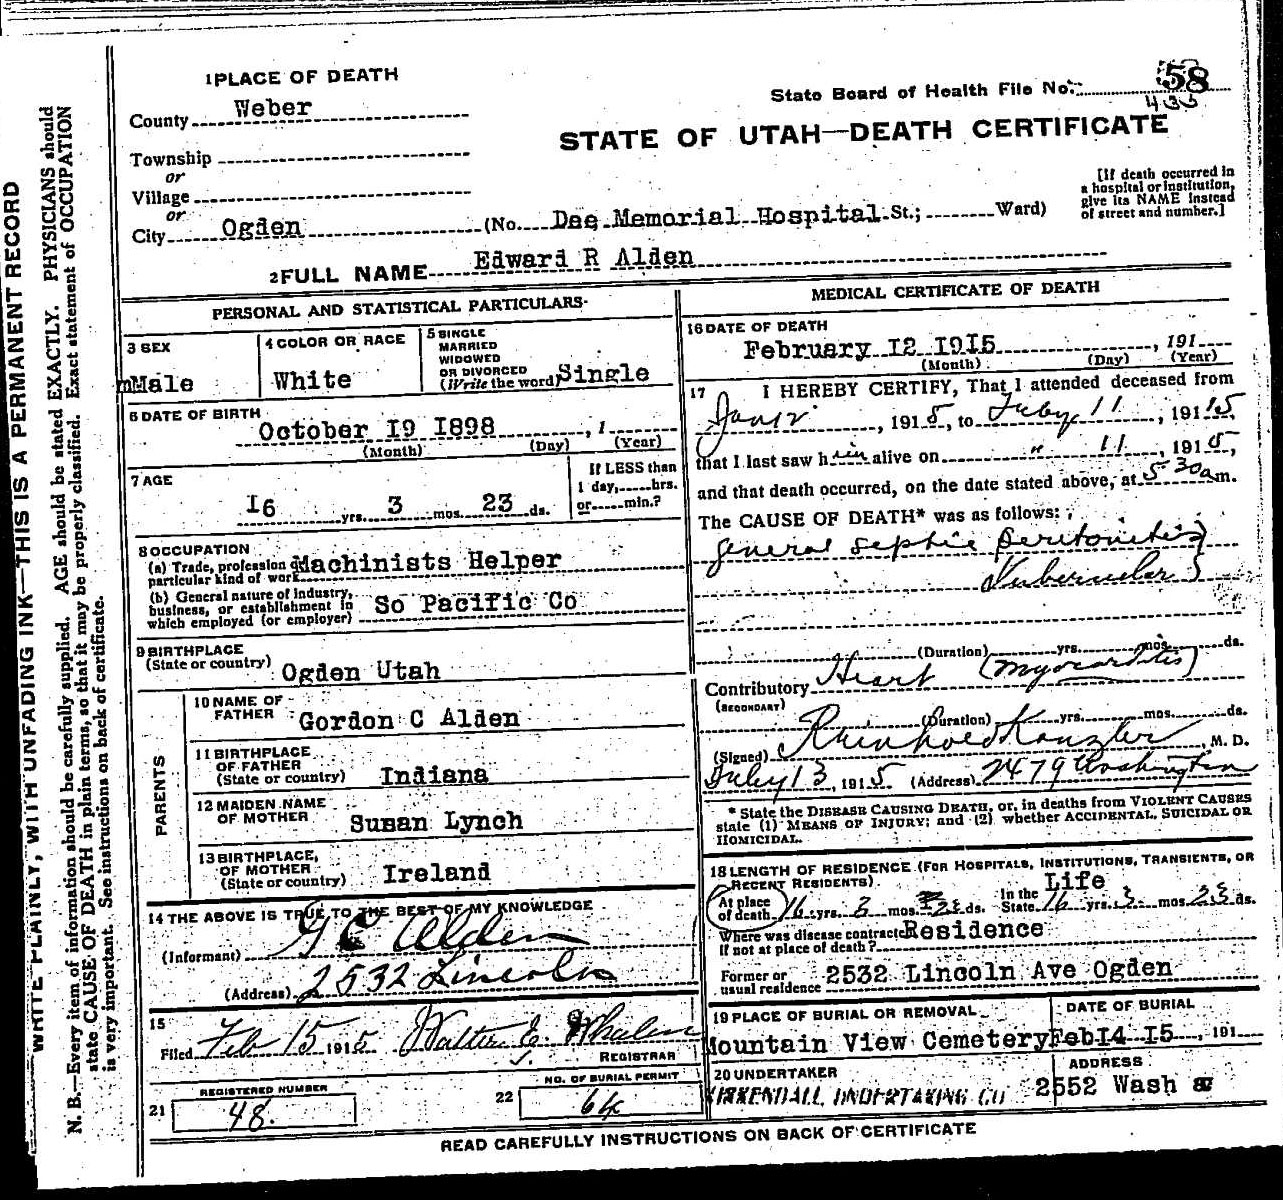 1 PLACE OF DEATH
County Weber
Township
or
Village
or
City Ogden (No. Dee Memorial Hospital St.; Ward)
State Board of Health File No. 58
435
STATE OF UTAH—DEATH CERTIFICATE
[If death occurred in
a hospital or institution,
give its NAME instead
of street and number.]
2 FULL NAME Edward R Alden
PERSONAL AND STATISTICAL PARTICULARS
3 SEX
mMale
4 COLOR OR RACE
White
5 SINGLE
MARRIED
WIDOWED
OR DIVORCED
(Write the word) Single
6 DATE OF BIRTH
October I9 I898 , 1
(Month) (Day) (Year)
7 AGE
I6 yrs. 3 mos. 23 ds.
If LESS than
1 day, hrs.
or min.?
8 OCCUPATION
(a) Trade, profession or Machinists Helper
particular kind of work
(b) General nature of industry,
business, or establishment in So Pacific Co
which employed (or employer)
9 BIRTHPLACE
(State or country) Ogden Utah
PARENTS
10 NAME OF
FATHER Gordon C Alden
11 BIRTHPLACE
OF FATHER
(State or country) Indiana
12 MAIDEN NAME
OF MOTHER Susan Lynch
13 BIRTHPLACE,
OF MOTHER
(State or country) Ireland
14 THE ABOVE IS TRUE TO THE BEST OF MY KNOWLEDGE
(Informant) G C Alden
(Address) 2532 Lincoln
15
Filed Feb 15 1915 Walter E Whalen
REGISTRAR
REGISTERED NUMBER
21 48.
NO. OF BURIAL PERMIT
22 64
MEDICAL CERTIFICATE OF DEATH
16 DATE OF DEATH
February I2 I9I5 , 191
(Month) (Day) (Year)
17 I HEREBY CERTIFY, That I attended deceased from
, 1915, to Feby 11 , 1915,
that I last saw him alive on " 11 , 1915,
and that death occurred, on the date stated above, at 5 30 am.
The CAUSE OF DEATH* was as follows:
general septic peritonitis
Tubercular
(Duration) yrs. mos. ds.
Contributory Heart (Myocarditis)
(SECONDARY)
(Duration) yrs. mos. ds.
(Signed) Reinhold Kanzler, M. D.
Feby 13, 1915 (Address) 2479 Washington
* State the DISEASE CAUSING DEATH, or, in deaths from VIOLENT CAUSES
state (1) MEANS OF INJURY; and (2) whether ACCIDENTAL, SUICIDAL OR
HOMICIDAL.
18 LENGTH OF RESIDENCE (FOR HOSPITALS, INSTITUTIONS, TRANSIENTS, OR
RECENT RESIDENTS) Life
At place
of death 16 yrs. 3 mos. 23 ds.
In the
State 16 yrs. 3 mos. 23 ds.
Where was disease contracted Residence
if not at place of death?
Former or
usual residence 2532 Lincoln Ave Ogden
19 PLACE OF BURIAL OR REMOVAL
Mountain View Cemetery
DATE OF BURIAL
Feb I4 I5 , 191
20 UNDERTAKER
KIRKENDALL UNDERTAKING CO
ADDRESS
2552 Wash
READ CAREFULLY INSTRUCTIONS ON BACK OF CERTIFICATE
WRITE PLAINLY, WITH UNFADING INK—THIS IS A PERMANENT RECORD
N. B.—Every item of information should be carefully supplied. AGE should be stated EXACTLY. PHYSICIANS should
state CAUSE OF DEATH in plain terms, so that it may be properly classified. Exact statement of OCCUPATION
is very important. See instructions on back of certificate.